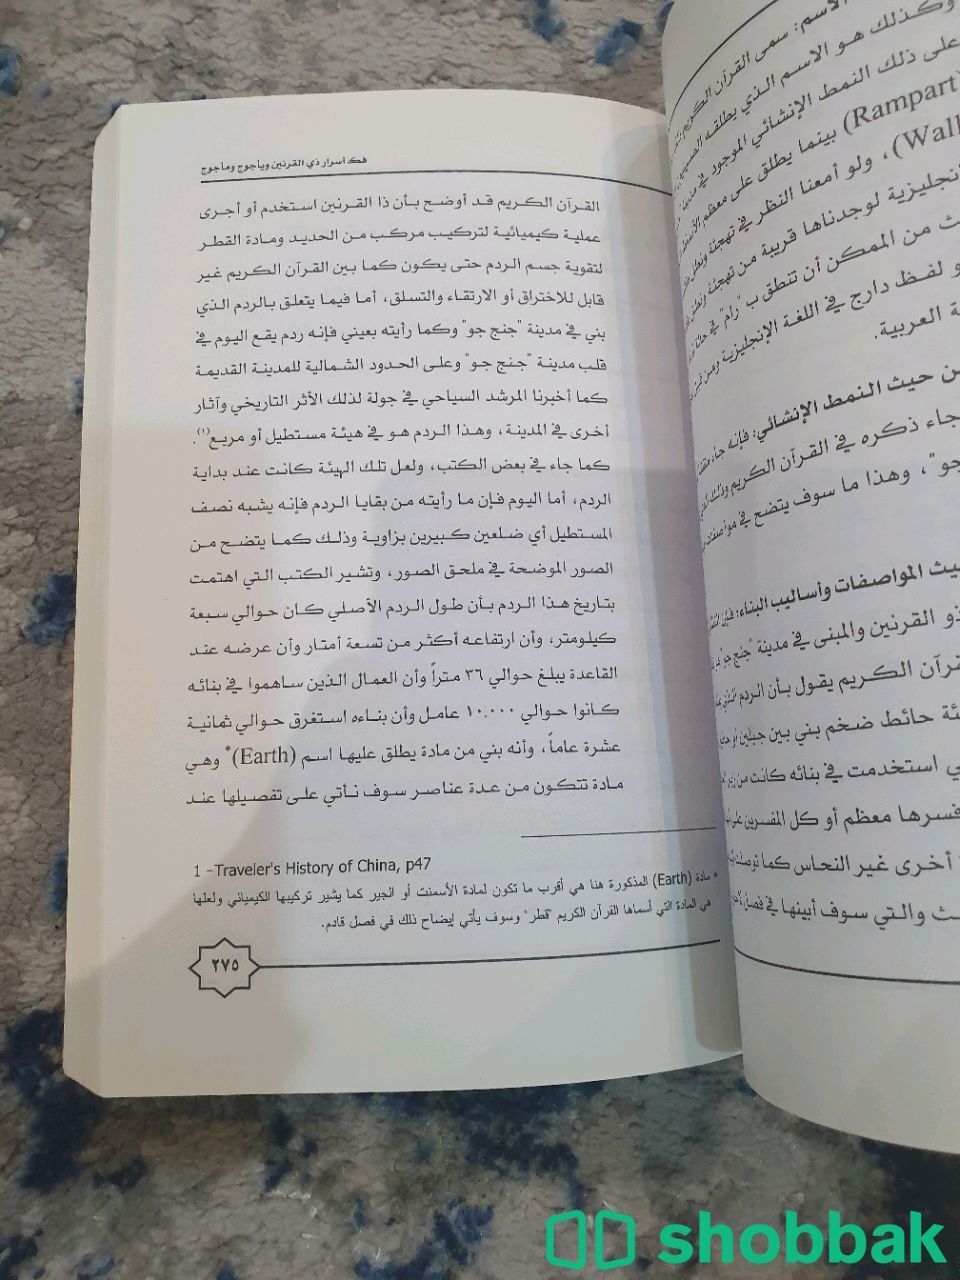 الاسم: سمى القرآن الكريم
وكذلك هو الاسم الذي يطلقه
على ذلك النمط الإنشائي الموجود في مدينة
(Rampart) بينما يطلق على معظم
(Wall)، ولو أمعنا النظر في تهجئة
لوجدناها قريبة من تهجئة
من الممكن أن تنطق بـ "رام" في
لفظ دارج في اللغة الإنجليزية
العربية.
حيث النمط الإنشائي: فإنه جاء
جاء ذكره في القرآن الكريم
جو"، وهذا ما سوف يتضح في
المواصفات وأساليب البناء:
ذو القرنين والمبنى في مدينة "جنج جو"
القرآن الكريم يقول بأن الردم
حائط ضخم بني بين جبلين
استخدمت في بنائه كانت من
فسرها معظم أو كل المفسرين على
أخرى غير النحاس كما توصلت
والتي سوف أبينها في فصل
فك أسرار ذي القرنين ويأجوج ومأجوج
القرآن الكريم قد أوضح بأن ذا القرنين استخدم أو أجرى
عملية كيميائية لتركيب مركب من الحديد ومادة القطر
لتقوية جسم الردم حتى يكون كما بين القرآن الكريم غير
قابل للاختراق أو الارتقاء والتسلق، أما فيما يتعلق بالردم الذي
بني في مدينة "جنج جو" وكما رأيته بعيني فإنه ردم يقع اليوم في
قلب مدينة "جنج جو" وعلى الحدود الشمالية للمدينة القديمة
كما أخبرنا المرشد السياحي في جولة لذلك الأثر التاريخي وآثار
أخرى في المدينة، وهذا الردم هو في هيئة مستطيل أو مربع(١).
كما جاء في بعض الكتب، ولعل تلك الهيئة كانت عند بداية
الردم، أما اليوم فإن ما رأيته من بقايا الردم فإنه يشبه نصف
المستطيل أي ضلعين كبيرين بزاوية وذلك كما يتضح من
الصور الموضحة في ملحق الصور، وتشير الكتب التي اهتمت
بتاريخ هذا الردم بأن طول الردم الأصلي كان حوالي سبعة
كيلومتر، وأن ارتفاعه أكثر من تسعة أمتار وأن عرضه عند
القاعدة يبلغ حوالي ٣٦ متراً وأن العمال الذين ساهموا في بنائه
كانوا حوالي ١٠,٠٠٠ عامل وأن بناءه استغرق حوالي ثمانية
عشرة عاماً، وأنه بني من مادة يطلق عليها اسم (Earth)* وهي
مادة تتكون من عدة عناصر سوف نأتي على تفصيلها عند
1 -Traveler's History of China, p47
* مادة (Earth) المذكورة هنا هي أقرب ما تكون لمادة الأسمنت أو الجير كما يشير تركيبها الكيميائي ولعلها
هي المادة التي أسماها القرآن الكريم "قطر" وسوف يأتي إيضاح ذلك في فصل قادم.
٢٧٥
shobbak